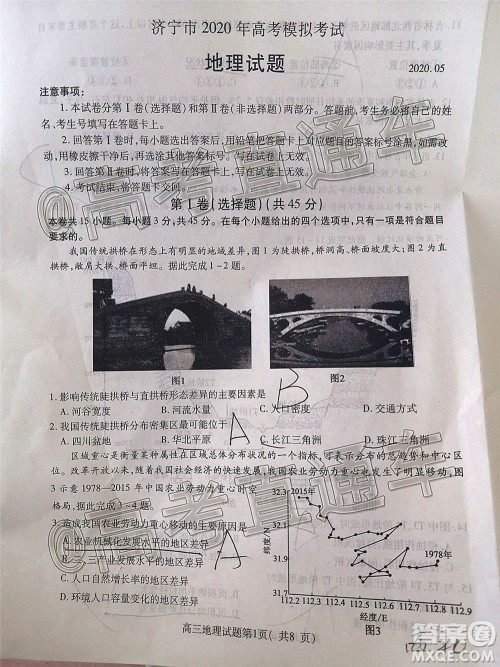 济宁市2020年高考模拟考试
地理试题
2020.05
注意事项：
1.本试卷分第Ⅰ卷(选择题)和第Ⅱ卷(非选择题)两部分。答题前,考生务必将自己的姓
名、考生号填写在答题卡上。
2.回答第Ⅰ卷时,每小题选出答案后,用铅笔把答题卡上对应题目的答案标号涂黑,如需改
动,用橡皮擦干净后,再选涂其它答案标号。写在试卷上无效。
3.回答第Ⅱ卷时,将答案写在答题卡上。写在试卷上无效。
4.考试结束,将答题卡交回。
第Ⅰ卷(选择题)(共45分)
本卷共15小题。每小题3分,共45分。在每个小题给出的四个选项中,只有一项是符合题目
要求的。
我国传统拱桥在形态上有明显的地域差异,图1为陡拱桥,桥洞高、桥面坡度大;图2为直
拱桥,敞肩大拱、桥面平坦。据此完成1~2题。
图1
图2
B
1.影响传统陡拱桥与直拱桥形态差异的主要因素是
A.河谷宽度 B.河流水量 C.人口密度 D.交通方式
2.我国传统陡拱桥分布密集区最可能位于
A
A.四川盆地 B.华北平原 C.长江三角洲 D.珠江三角洲
区域重心是衡量某种属性在区域总体分布状况的一个指标,可表示分布的总趋势和中心
区位。改革开放以来,随着我国社会经济的快速发展,我国农业劳动力重心发生了明显移动,图
3示意1978—2015年中国农业劳动力重心时空
格局。据此完成3~4题。
3.造成我国农业劳动力重心移动的主要原因是
A
A.农业机械化发展水平的地区差异
B.二、三产业发展水平的地区差异
C.人口自然增长率的地区差异
D.环境人口容量变化的地区差异
纬度/N
32.3
32.1
31.9
31.7
2015年
1978年
112.2 112.3 112.4 112.5 112.6 112.7 112.8 112.9
经度/E
图3
高三地理试题第1页(共8页)
高考直通车
高考直通车
答案圈
MXQE.COM